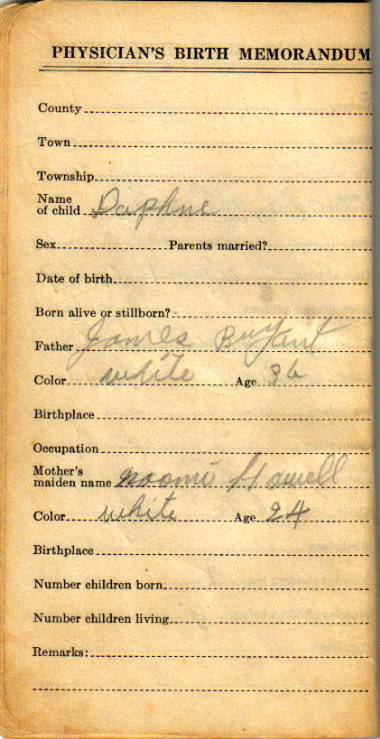 PHYSICIAN'S BIRTH MEMORANDUM
County
Town
Township
Name
of child Daphne
Sex Parents married?
Date of birth
Born alive or stillborn?
Father James Bryant
Color white Age 36
Birthplace
Occupation
Mother's
maiden name Naomi Howell
Color white Age 24
Birthplace
Number children born
Number children living
Remarks: